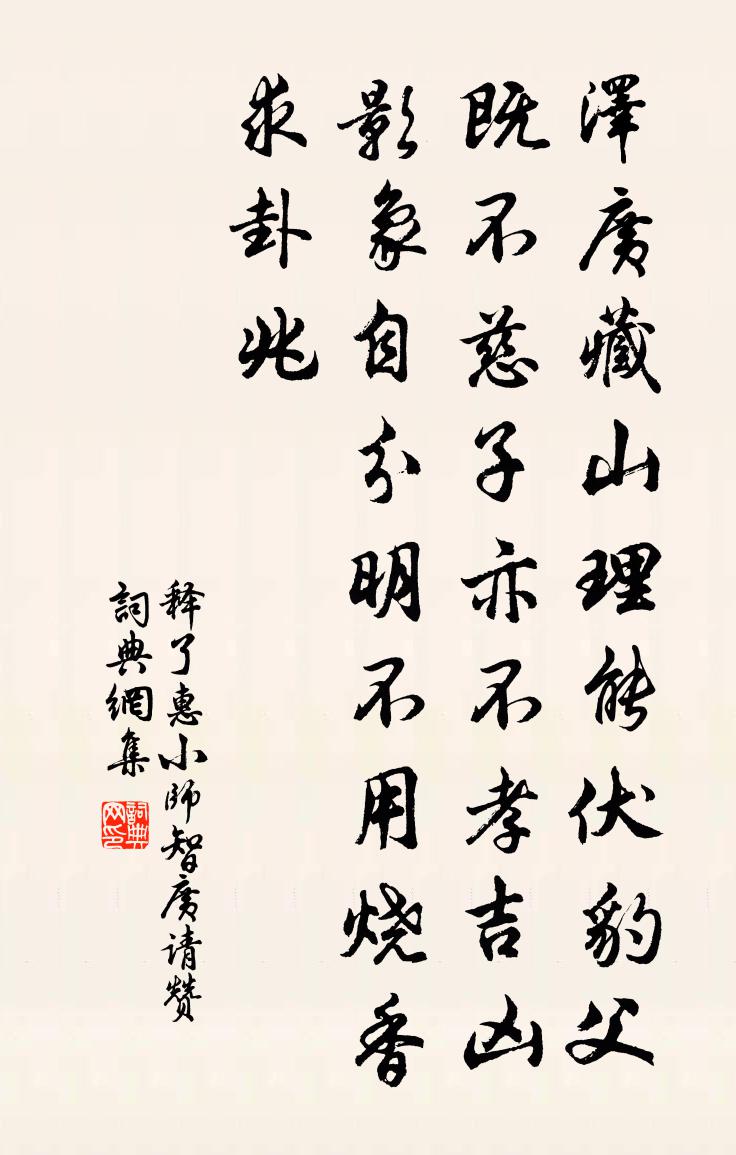 澤廣藏山理能伏豹父
既不慈子亦不孝吉凶
影象自分明不用燒香
求卦兆
释了惠小師智廣请赞
詞典網集
詞典網印